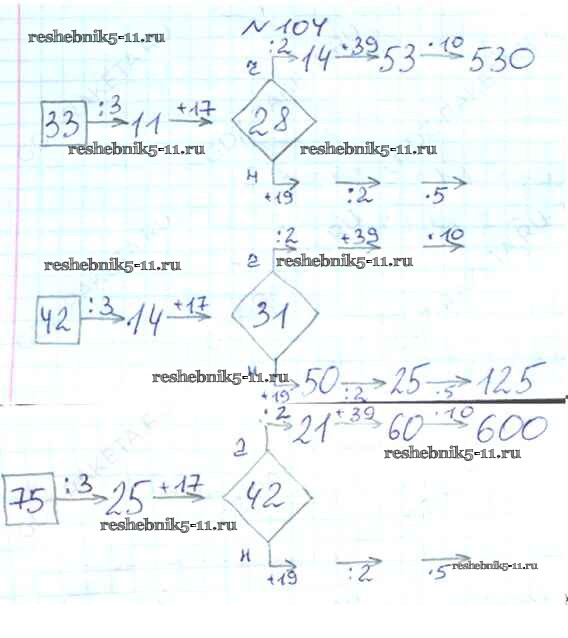 № 104
reshebnik5-11.ru
:2 14 +39 53 ·10 530
ч
33 :3 11 +17 28
reshebnik5-11.ru reshebnik5-11.ru
н
+19 :2 ·5
reshebnik5-11.ru
:2 +39 ·10
reshebnik5-11.ru
ч
42 :3 14 +17 31
н
reshebnik5-11.ru
+19 50 :2 25 ·5 125
:2 21 +39 60 ·10 600
reshebnik5-11.ru
ч
75 :3 25 +17 42
reshebnik5-11.ru
н
+19 :2 ·5
reshebnik5-11.ru